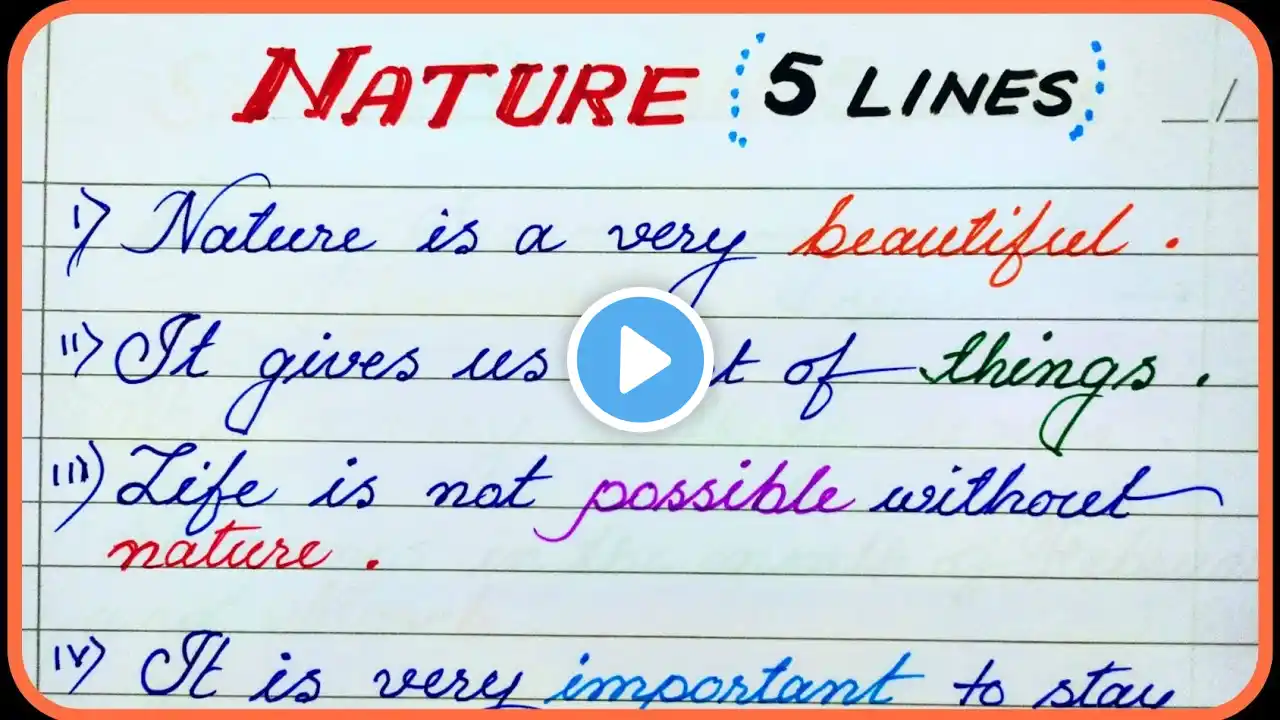 NATURE (5 LINES)
i) Nature is a very beautiful .
ii) It gives us of things .
iii) Life is not possible without
nature .
iv) It is very important to stay